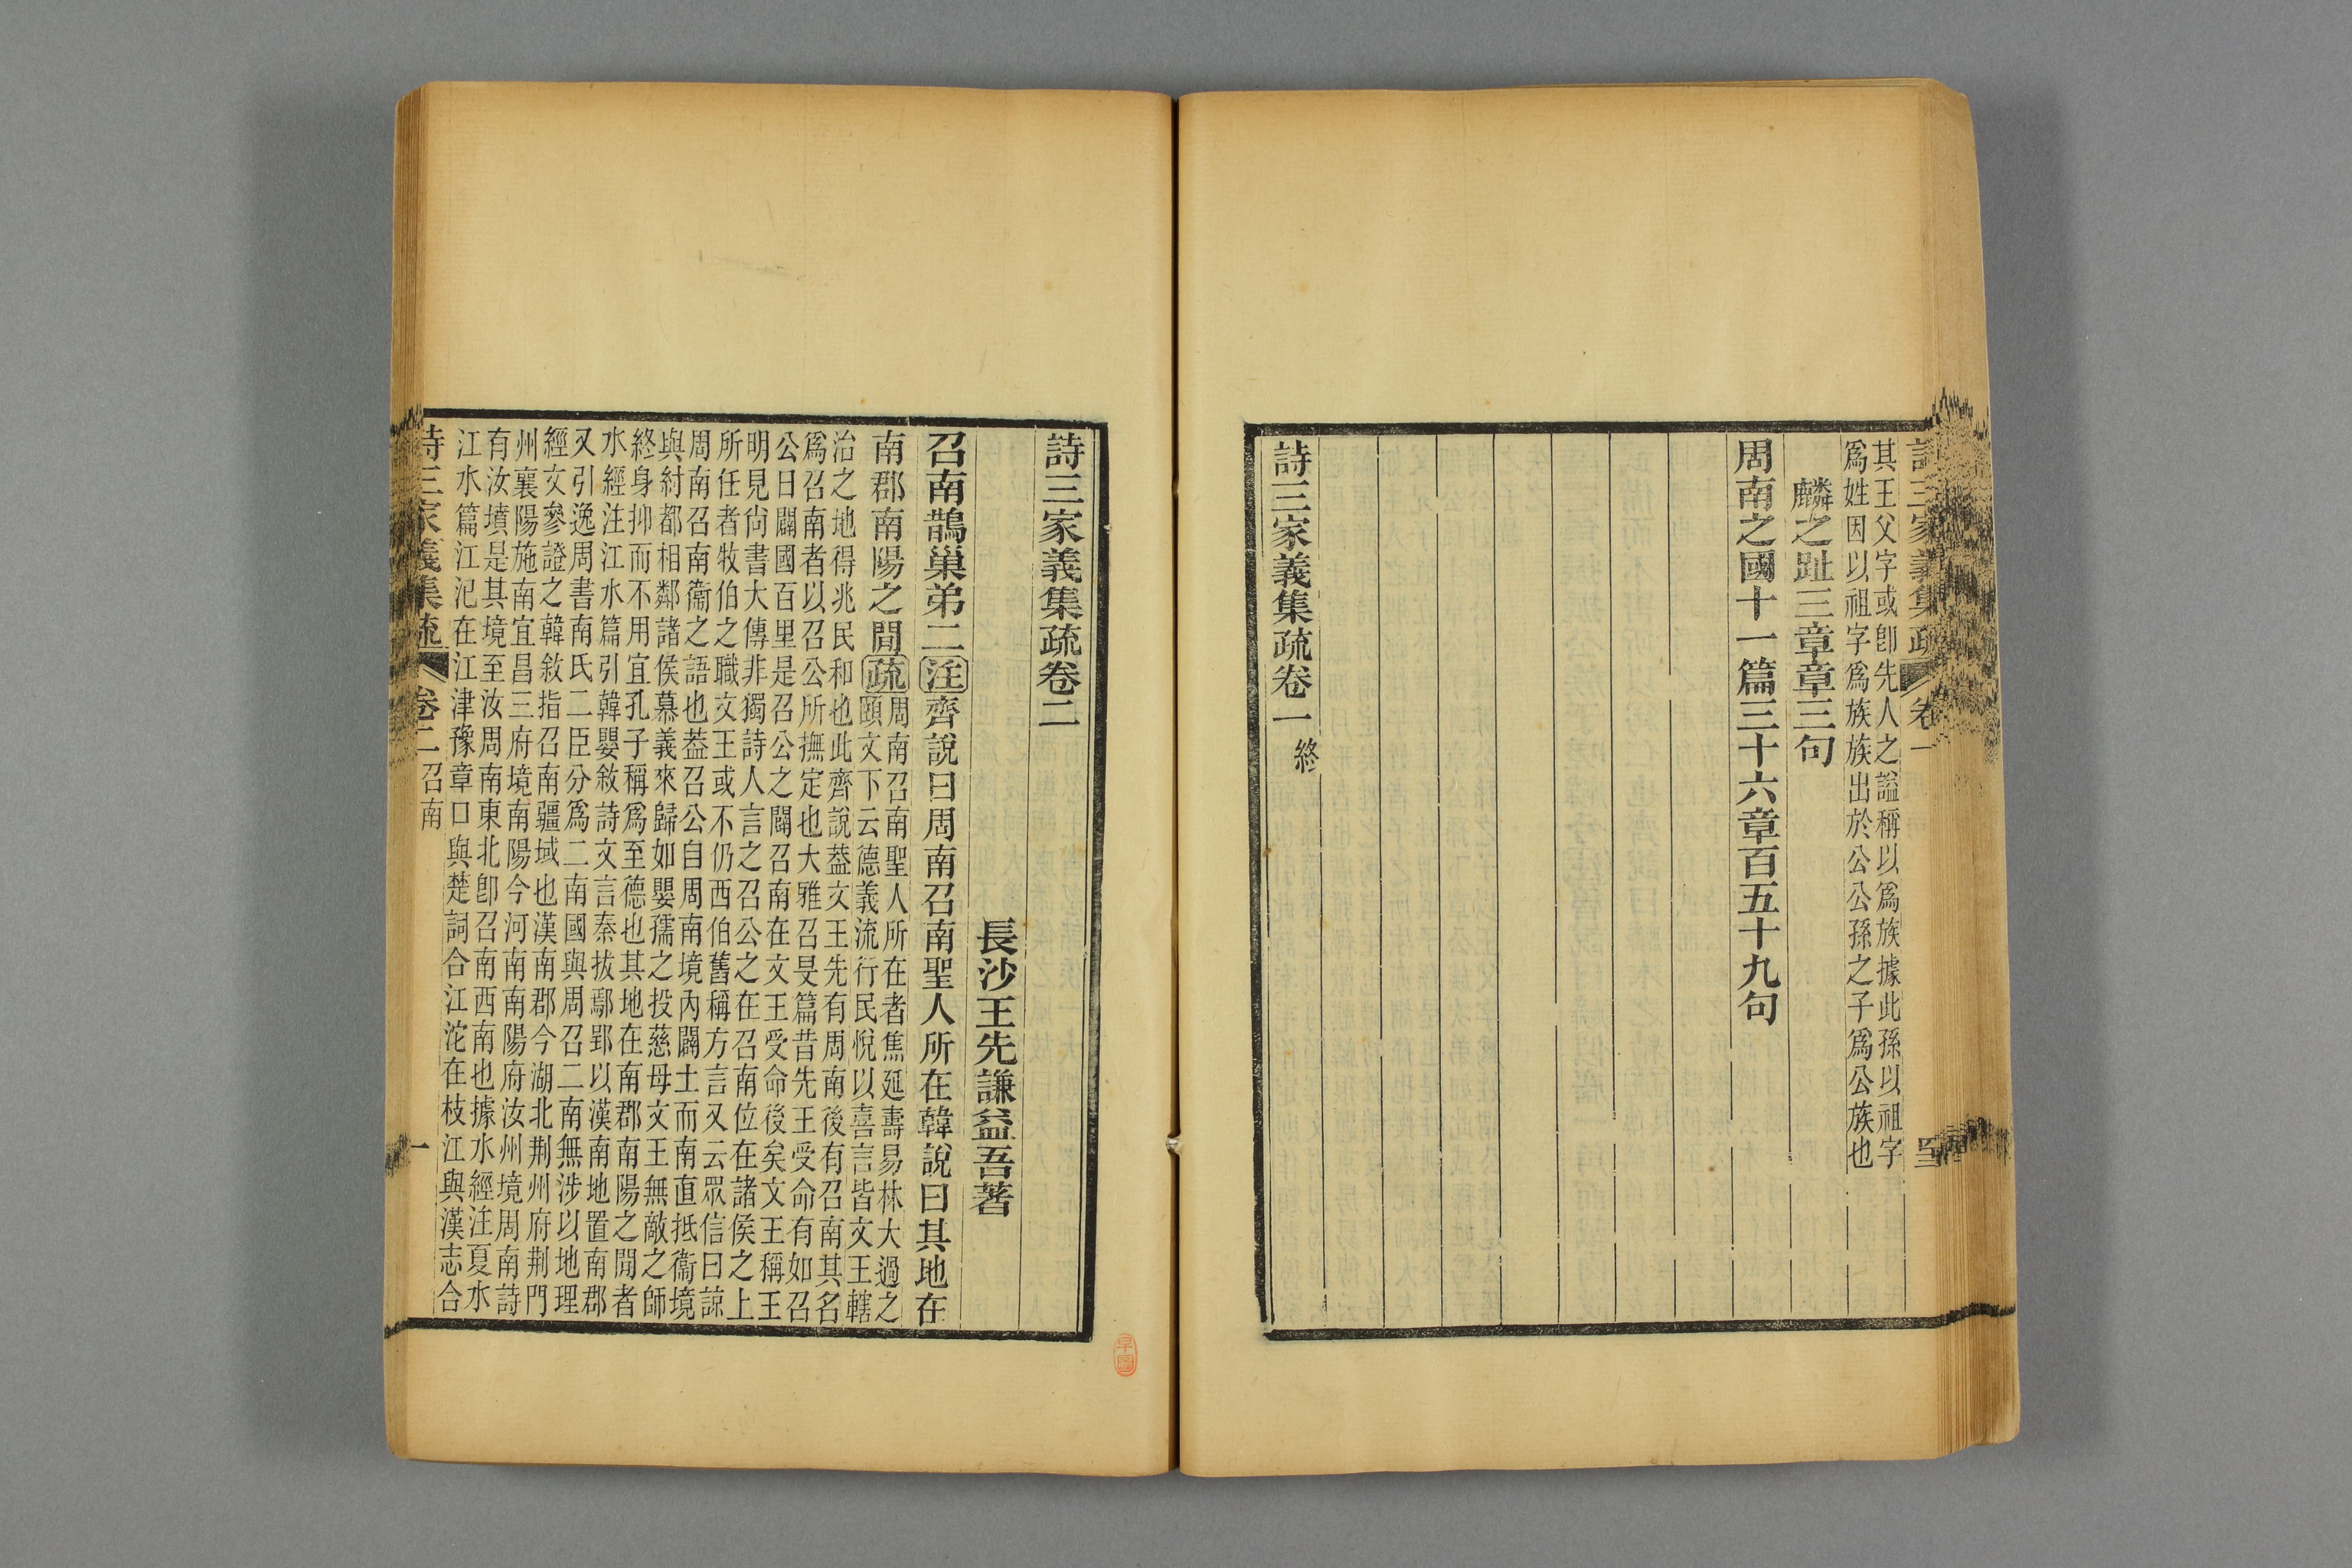 其王父字或卽先人之諡稱以爲族據此孫以祖字
爲姓因以祖字爲族族出於公公孫之子爲公族也
麟之趾三章章三句
周南之國十一篇三十六章百五十九句
詩三家義集疏卷一終
詩三家義集疏卷二
長沙王先謙益吾著
召南鵲巢弟二注齊說曰周南召南聖人所在韓說曰其地在
南郡南陽之閒疏周南召南聖人所在者焦延壽易林大過之
頤文下云德義流行民悅以喜言皆文王轄
治之地得兆民和也此齊說葢文王先有周南後有召南其名
爲召南者以召公所撫定也大雅召旻篇昔先王受命有如召
公日闢國百里是召公之闢召南在文王受命後矣文王稱王
明見尙書大傳非獨詩人言之召公之在召南位在諸侯之上
所任者牧伯之職文王或不仍西伯舊稱方言又云眾信曰諒
周南召南衞之語也葢召公自周南境內闢土而南直抵衞境
與紂都相鄰諸侯慕義來歸如嬰孺之投慈母文王無敵之師
終身抑而不用宜孔子稱爲至德也其地在南郡南陽之閒者
水經注江水篇引韓嬰敘詩文言秦拔鄢郢以漢南地置南郡
又引逸周書南氏二臣分爲二南國與周召二南無涉以地理
經文參證之韓敘指召南疆域也漢南郡今湖北荆州府荆門
州襄陽施南宜昌三府境南陽今河南南陽府汝州境周南詩
有汝墳是其境至汝周南東北卽召南西南也據水經注夏水
江水篇江汜在江津豫章口與楚詞合江沱在枝江與漢志合
詩三家義集疏 卷二 召南 一